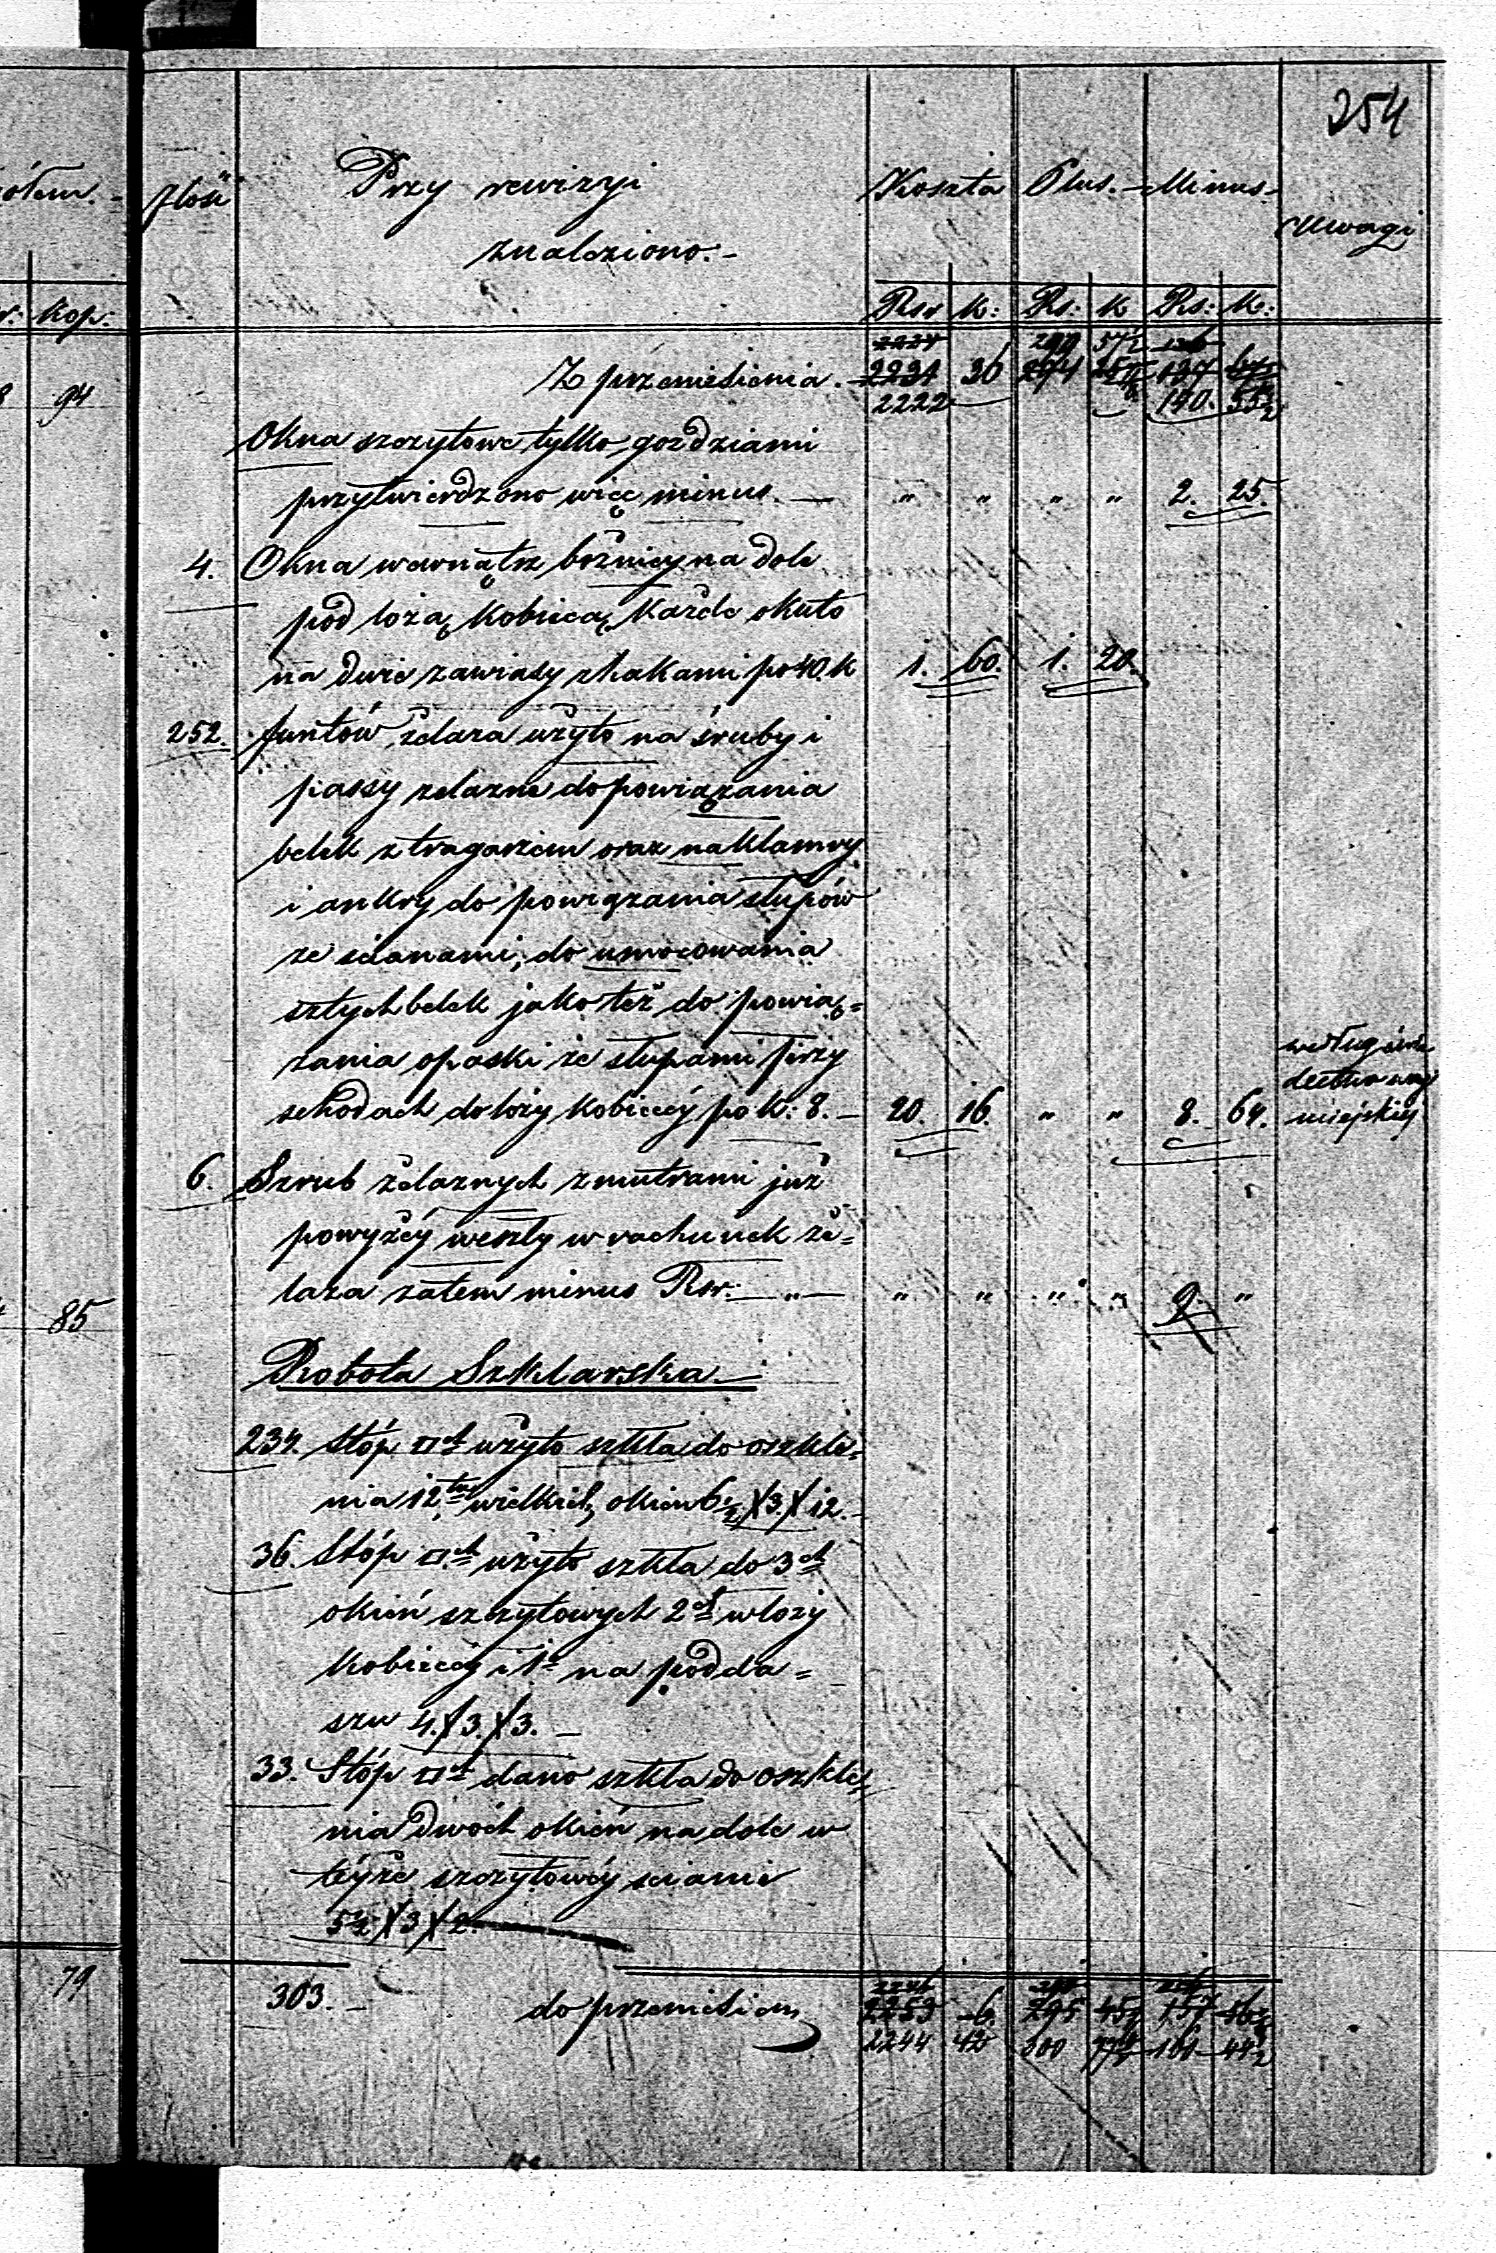 254
ołem.
Ilość
Przy rewizyi
znaleziono.-
Koszta
Plus.-
Minus.-
Uwagi
r: Kop:
Rsr K: Rs: K Rs: K:
2231
Z przeniesienia.- 36
94
2222 140. 55½
Okna szczytowe tylko gozdziami
przytwierdzono więc minus.— " " " " 2. 25.
4. Okna wewnątrz bożnicy na dole
pod lożą Kobiecą, Każde okuto
na dwie zawiasy z hakami po 40. K 1. 60. 1. 20.
252. funtów żelaza użyto na śruby i
passy żelazne do powiązania
belek z tragarzem oraz na Klamry
i ankry do powiązania słupów
ze scianami; do umocowania
sztychbelek jako też do powią=
zania opaski ze słupami przy
według świa
dectwa wagi
schodach do loży Kobiecéy po K: 8.— 20. 16. " " 8. 64. miejskiej
6. Szrub żelaznych z mutrami już
powyżéy weszły w rachunek że=
laza zatem minus Rsr:—"— " " " " 2. "
85
Robota Szklarska.—
234. Stóp □ch użyto szkła do oszkle=
nia 12tu wielkich okien 6½ X 3. X 12.-
36. Stóp □ch użyto szkła do 3ch
okień szczytowych 2ch w loży
Kobiecéy i 1o na podda=
szu 4. X 3. X 3.—
33. Stóp □ch dano szkła do oszkle=
nia dwóch okień na dole w
téyże szczytowéy scianie
5½ X 3 X 2.
79
303.— do przeniesien 2253 6. 295 45½ 157
2244 42 300 77½ 161 44½